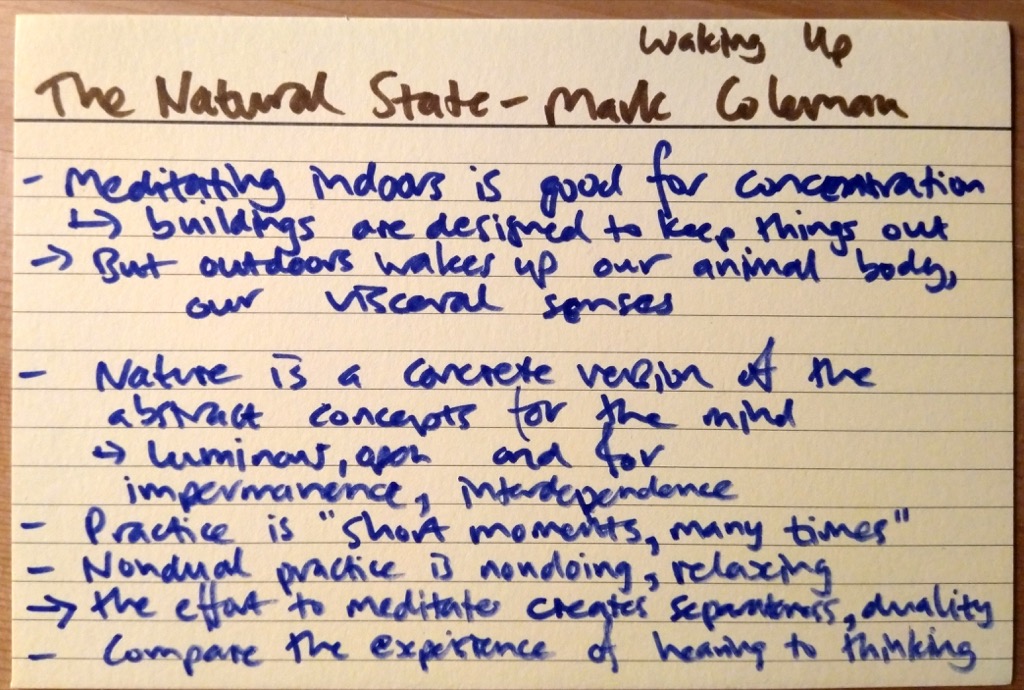 Waking Up
The Natural State - Mark Coleman
- Meditating indoors is good for concentration
↳ buildings are designed to keep things out
→ But outdoors wakes up our animal body,
our visceral senses
- Nature is a concrete version of the
abstract concepts for the mind
→ luminous, open and for
impermanence, interdependence
- Practice is "short moments, many times"
- Nondual practice is nondoing, relaxing
→ the effort to meditate creates separateness, duality
- Compare the experience of hearing to thinking